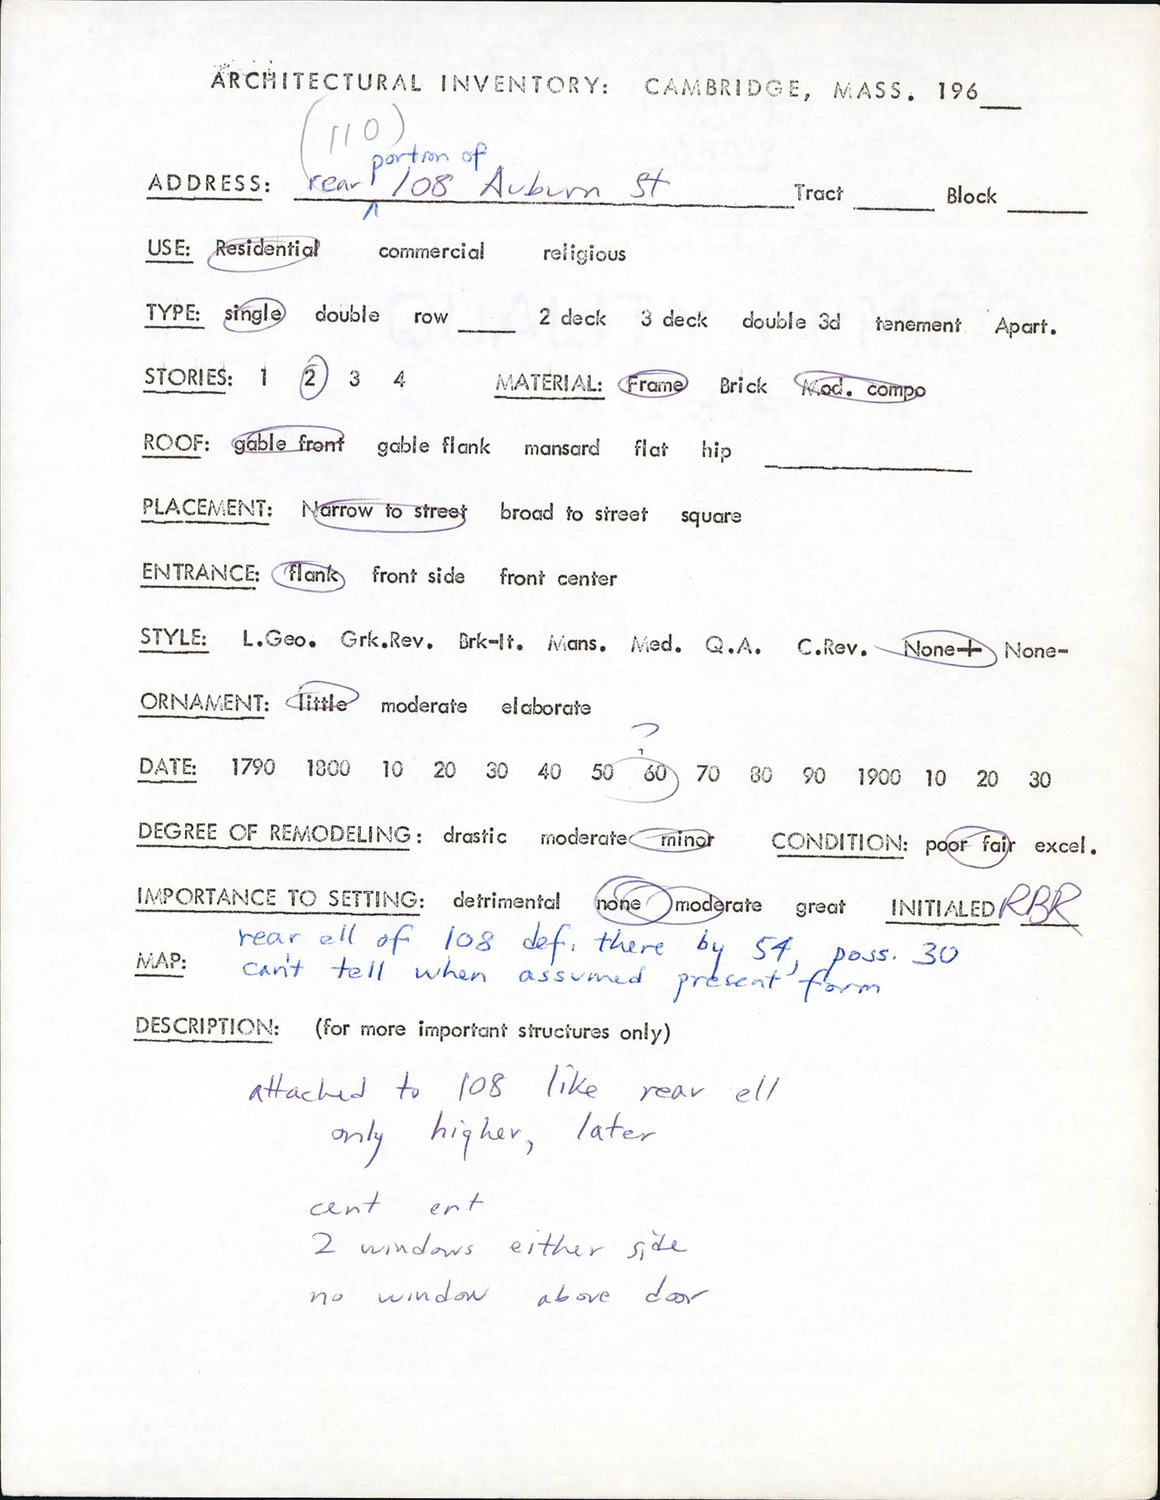 ARCHITECTURAL INVENTORY: CAMBRIDGE, MASS. 196___
(110)
portion of
ADDRESS: rear ^ 108 Auburn St Tract ______ Block ______
USE: Residential commercial religious
TYPE: single double row ____ 2 deck 3 deck double 3d tenement Apart.
STORIES: 1 2 3 4 MATERIAL: Frame Brick Mod. compo
ROOF: gable front gable flank mansard flat hip ______
PLACEMENT: Narrow to street broad to street square
ENTRANCE: flank front side front center
STYLE: L.Geo. Grk.Rev. Brk-It. Mans. Med. Q.A. C.Rev. None+ None-
ORNAMENT: little moderate elaborate
?
DATE: 1790 1800 10 20 30 40 50 60 70 80 90 1900 10 20 30
DEGREE OF REMODELING: drastic moderate minor CONDITION: poor fair excel.
IMPORTANCE TO SETTING: detrimental none moderate great INITIALED RBR
rear ell of 108 def. there by 54, poss. 30
MAP: can't tell when assumed present form
DESCRIPTION: (for more important structures only)
attached to 108 like rear ell
only higher, later
cent ent
2 windows either side
no window above door